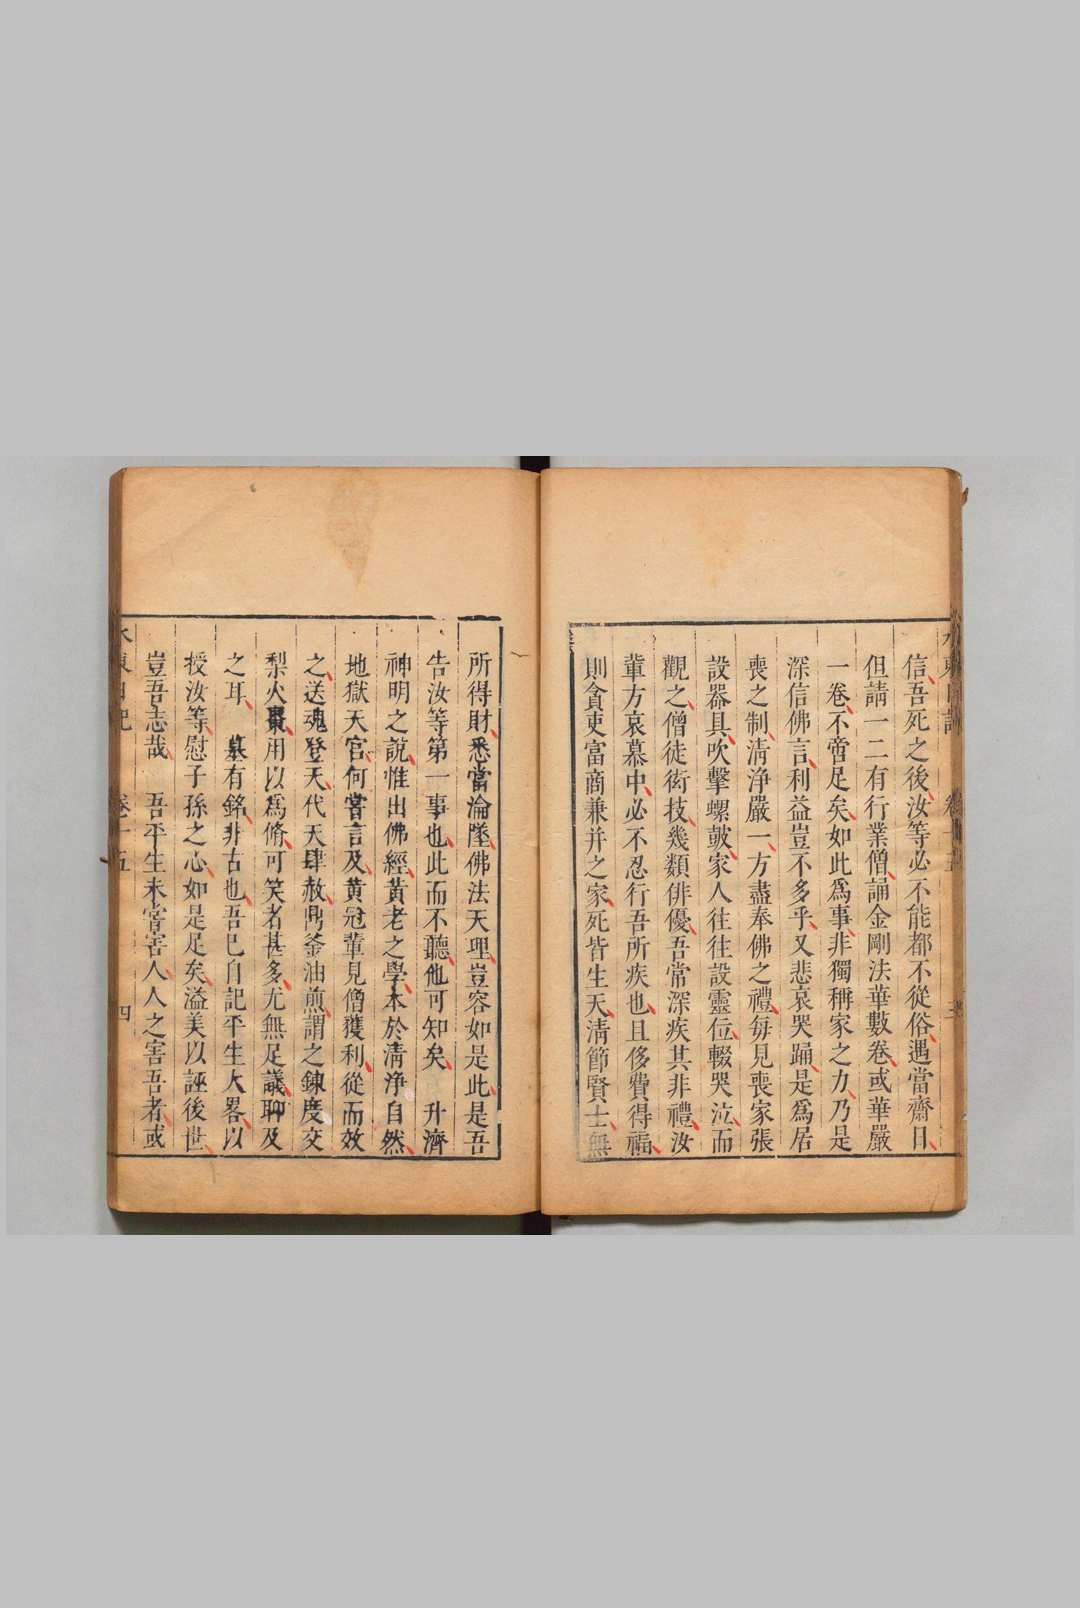 信吾死之後汝等必不能都不從俗遇當齋日
但請一二有行業僧誦金剛法華數卷或華嚴
一卷不啻足矣如此爲事非獨稱家之力乃是
深信佛言利益豈不多乎又悲哀哭踊是爲居
喪之制清淨嚴一方盡奉佛之禮每見喪家張
設器具吹擊螺鼓家人往往設靈位輟哭泣而
觀之僧徒衒技幾類俳優吾常深疾其非禮汝
輩方哀慕中必不忍行吾所疾也且侈費得福
則貪吏富商兼并之家死皆生天清節賢士無
所得財悉當淪墜佛法天理豈容如是此是吾
告汝等第一事也此而不聽他可知矣　升濟
神明之說惟出佛經黃老之學本於清淨自然
地獄天官何嘗言及黃冠輩見僧獲利從而效
之送魂登天代天肆赦鼎釜油煎謂之鍊度交
梨火棗用以爲脩可笑者甚多尤無足議聊及
之耳　墓有銘非古也吾已自記平生大畧以
授汝等慰子孫之心如是足矣溢美以誣後世
豈吾志哉　吾平生未嘗害人人之害吾者或
水東日記　卷十五　四